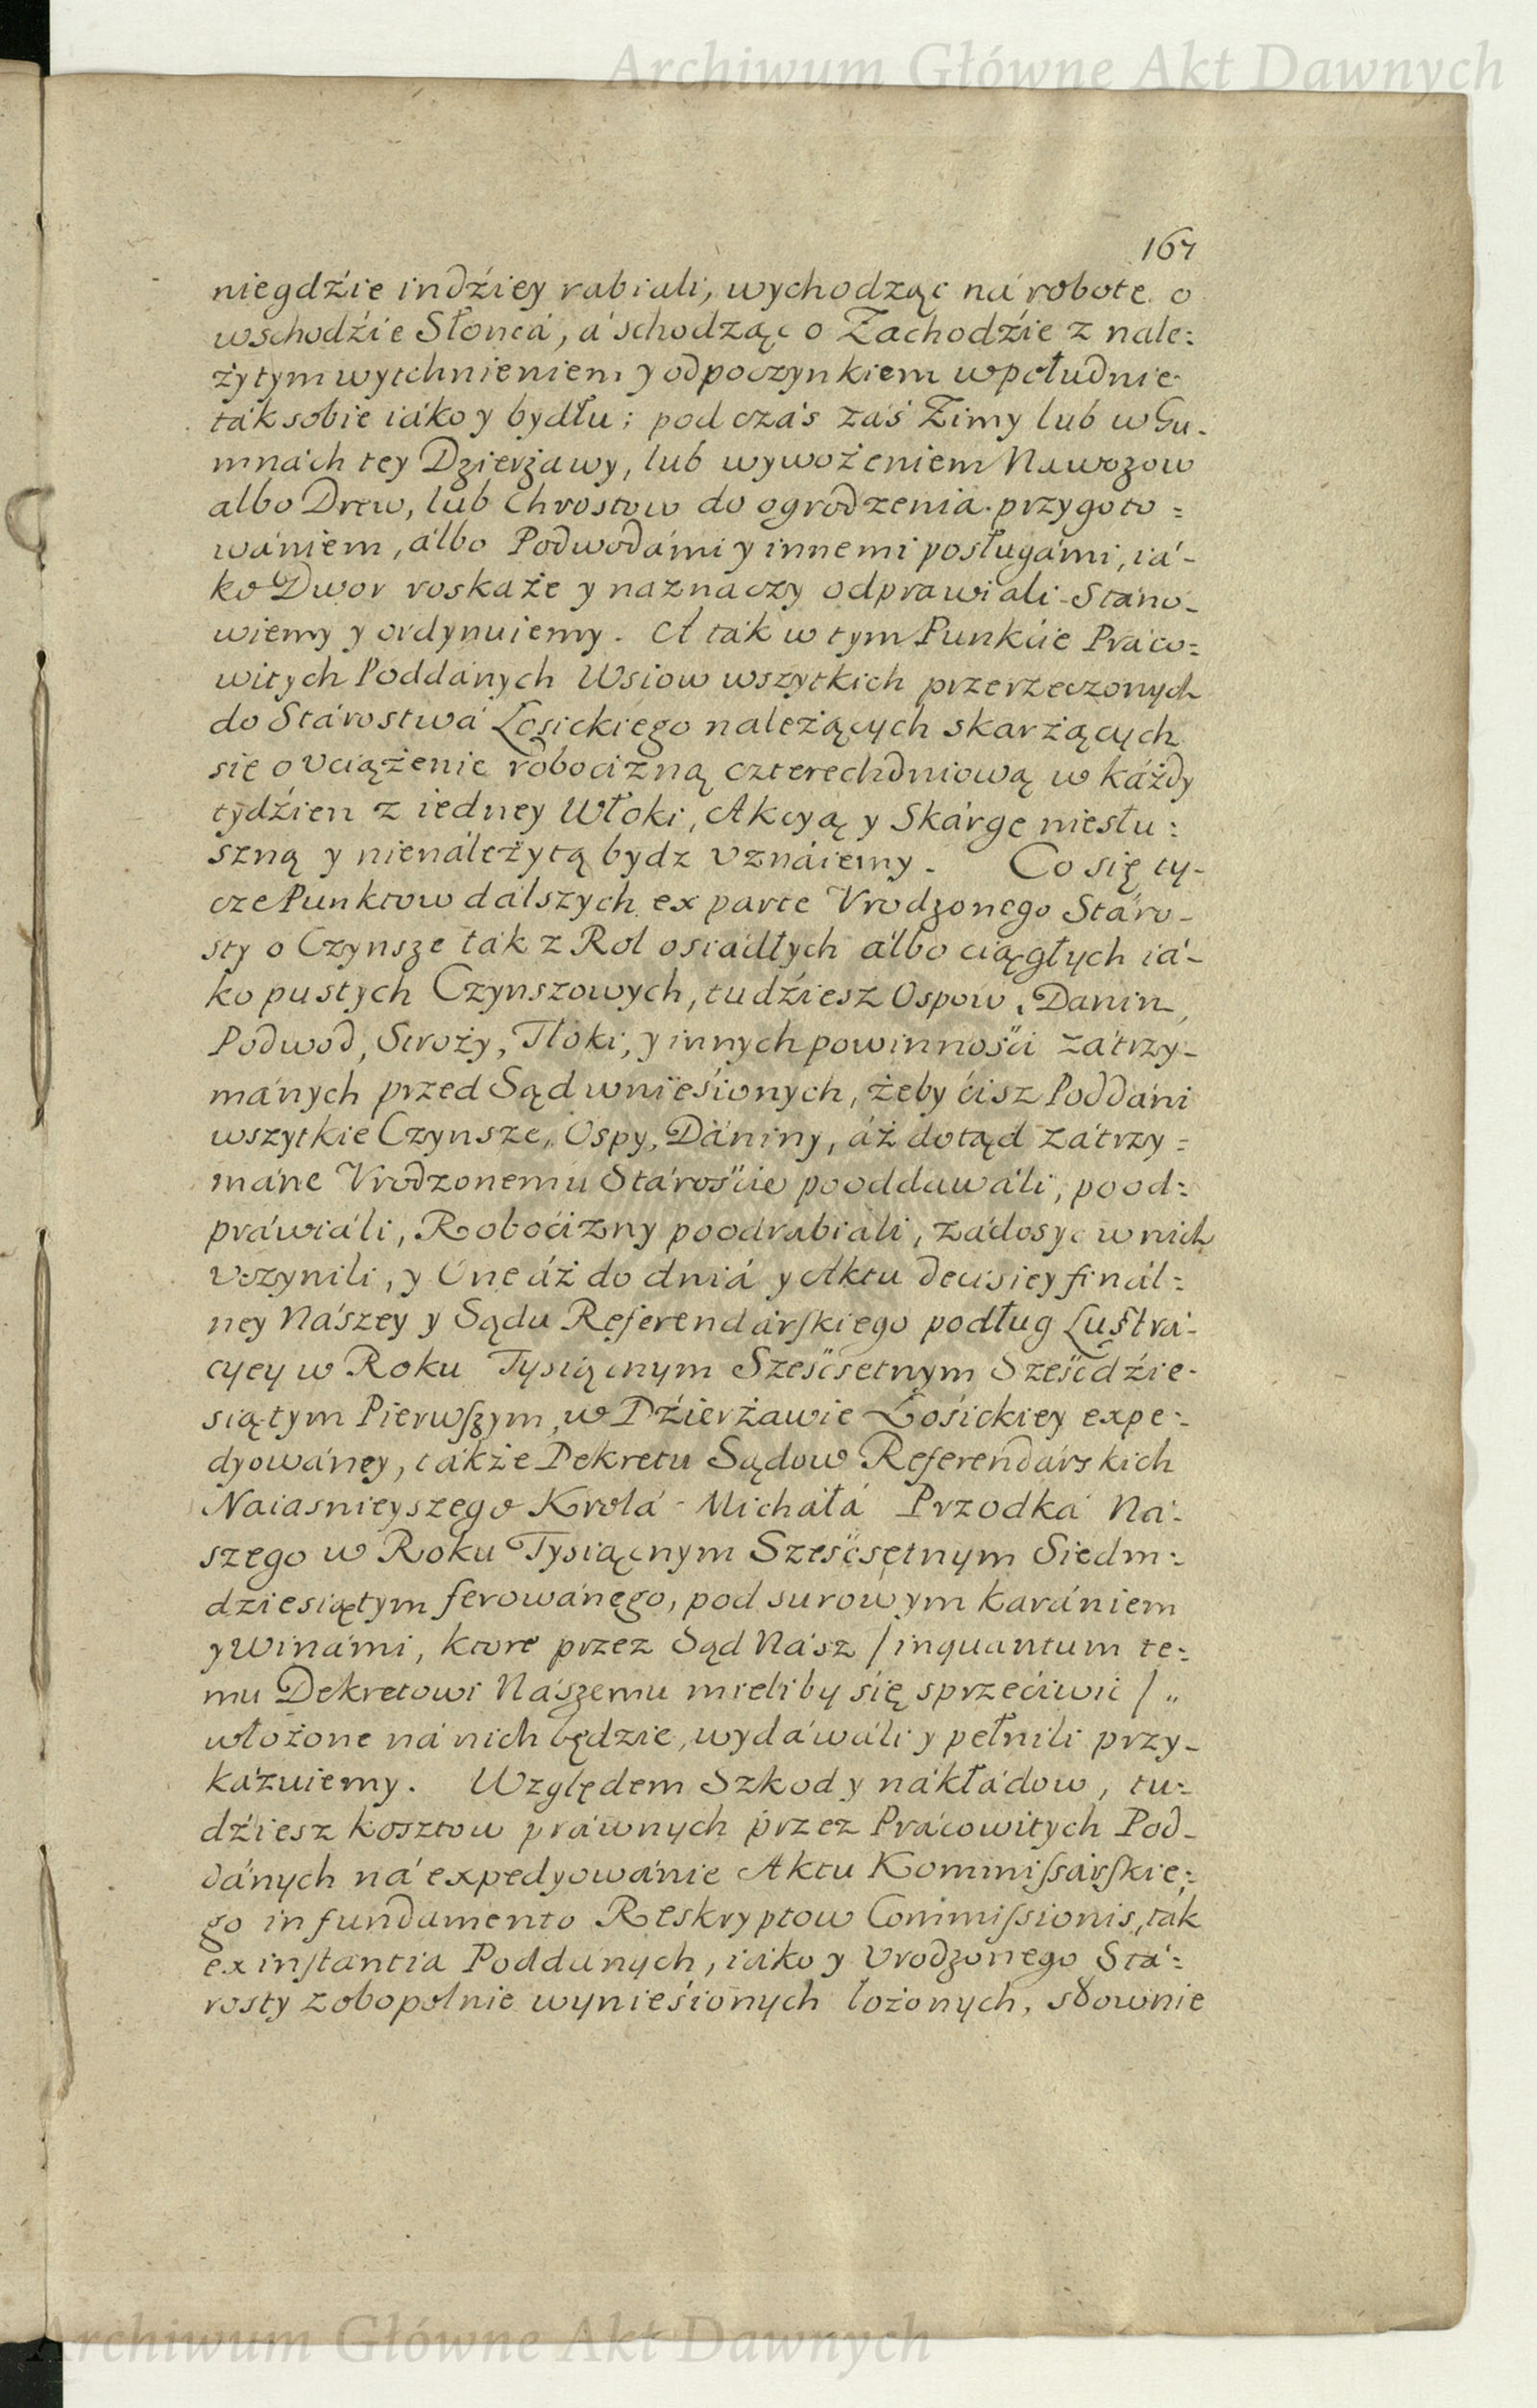 Archiwum Główne Akt Dawnych
167
niegdźie indźiey rabiali, wychodząc ná robotę o
wschodźie Słońcá, á schodząc o Zachodźie z nale:
żytym wytchnieniem y odpoczynkiem wpołudnie
ták sobie iáko y bydłu; pod czás záś Zimy lub w Gu-
mnách tey Dzierżawy, lub wywożeniem Nawozow
albo Drew, lub Chrostow do ogrodzenia przygoto=
wániem, álbo Podwodámi y innemi posługámi, iá-
ko Dwor roskaże y naznaczy odprawiali Stano-
wiemy y ordynuiemy. A tak w tym Punkcie Praco:
witych Poddánych Wsiow wszytkich przerzeczonych
do Stárostwá Łosickiego należących skarżących
się o vciążenie robocizną czterechdniową w káżdy
tydźien z iedney Włoki, Akcyą y Skárgę niesłu:
szną y nienáleżytą bydz vznáiemy. Co się ty-
cze Punktow dálszych ex parte Vrodzonego Stáro-
sty o Czynsze ták z Rol osiadłych álbo ciągłych iá-
ko pustych Czynszowych, tudźiesz Ospow, Danin,
Podwod, Stroży, Tłoki, y innych powinnośći zátrzy-
mánych przed Sąd wnieśionych, żeby ćisz Poddáni
wszytkie Czynsze, Ospy, Dániny, áż dotąd zátrzy=
máne Vrodzonemu Stárośćie pooddawáli, pood:
práwiáli, Roboćizny poodrabiáli, zádosyc w nich
vczynili, y One áż do dniá y Aktu decisiey finál:
ney Nászey y Sądu Referendárskiego podług Lustrá-
cyey w Roku Tysiącnym Sześćsetnym Sześćdźie-
siątym Pierwszym, w Dźierżawie Łośickiey expe:
dyowáney, także Dekretu Sądow Referendárskich
Naiasnieyszego Krolá Michałá Przodká Ná:
szego w Roku Tysiącnym Sześćsetnym Siedm:
dziesiątym ferowánego, pod surowym karániem
y Winámi, ktore przez Sąd Nász / inquantum te:
mu Dekretowi Nászemu mieliby się sprzećiwić / „
włożone ná nich będzie, wydáwáli y pełnili przy-
kázuiemy. Względem Szkod y nákłádow, tu:
dźiesz kosztow práwnych przez Prácowitych Pod-
dánych ná expedyowánie Aktu Kommissárskie:
go in fundamento Reskryptow Commissionis, tak
ex instantia Poddánych, iáko y Vrodzonego Stá:
rosty z obopolnie wynieśionych łożonych, słownie
Archiwum Główne Akt Dawnych